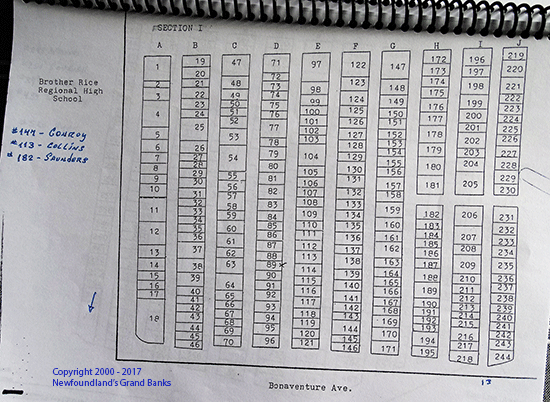 SECTION I
Brother Rice
Regional High
School
#144 - CONROY
#113 - COLLINS
# 182 - SAUNDERS
A B C D E F G H I J
1 2 3 4 5 6 7 8 9 10 11 12 13 14 15 16 17 18
19 20 21 22 23 24 25 26 27 28 29 30 31 32 33 34 35 36 37 38 39 40 41 42 43 44 45 46
47 48 49 50 51 52 53 54 55 56 57 58 59 60 61 62 63 64 65 66 67 68 69 70
71 72 73 74 75 76 77 78 79 80 81 82 83 84 85 86 87 88 89 90 91 92 93 94 95 96
97 98 99 100 101 102 103 104 105 106 107 108 109 110 111 112 113 114 115 116 117 118 119 120 121
122 123 124 125 126 127 128 129 130 131 132 133 134 135 136 137 138 139 140 141 142 143 144 145 146
147 148 149 150 151 152 153 154 155 156 157 158 159 160 161 162 163 164 165 166 167 168 169 170 171
172 173 174 175 176 177 178 179 180 181 182 183 184 185 186 187 188 189 190 191 192 193 194 195
196 197 198 199 200 201 202 203 204 205 206 207 208 209 210 211 212 213 214 215 216 217 218
219 220 221 222 223 224 225 226 227 228 229 230 231 232 233 234 235 236 237 238 239 240 241 242 243 244
Bonaventure Ave.
13
Copyright 2000 - 2017
Newfoundland's Grand Banks